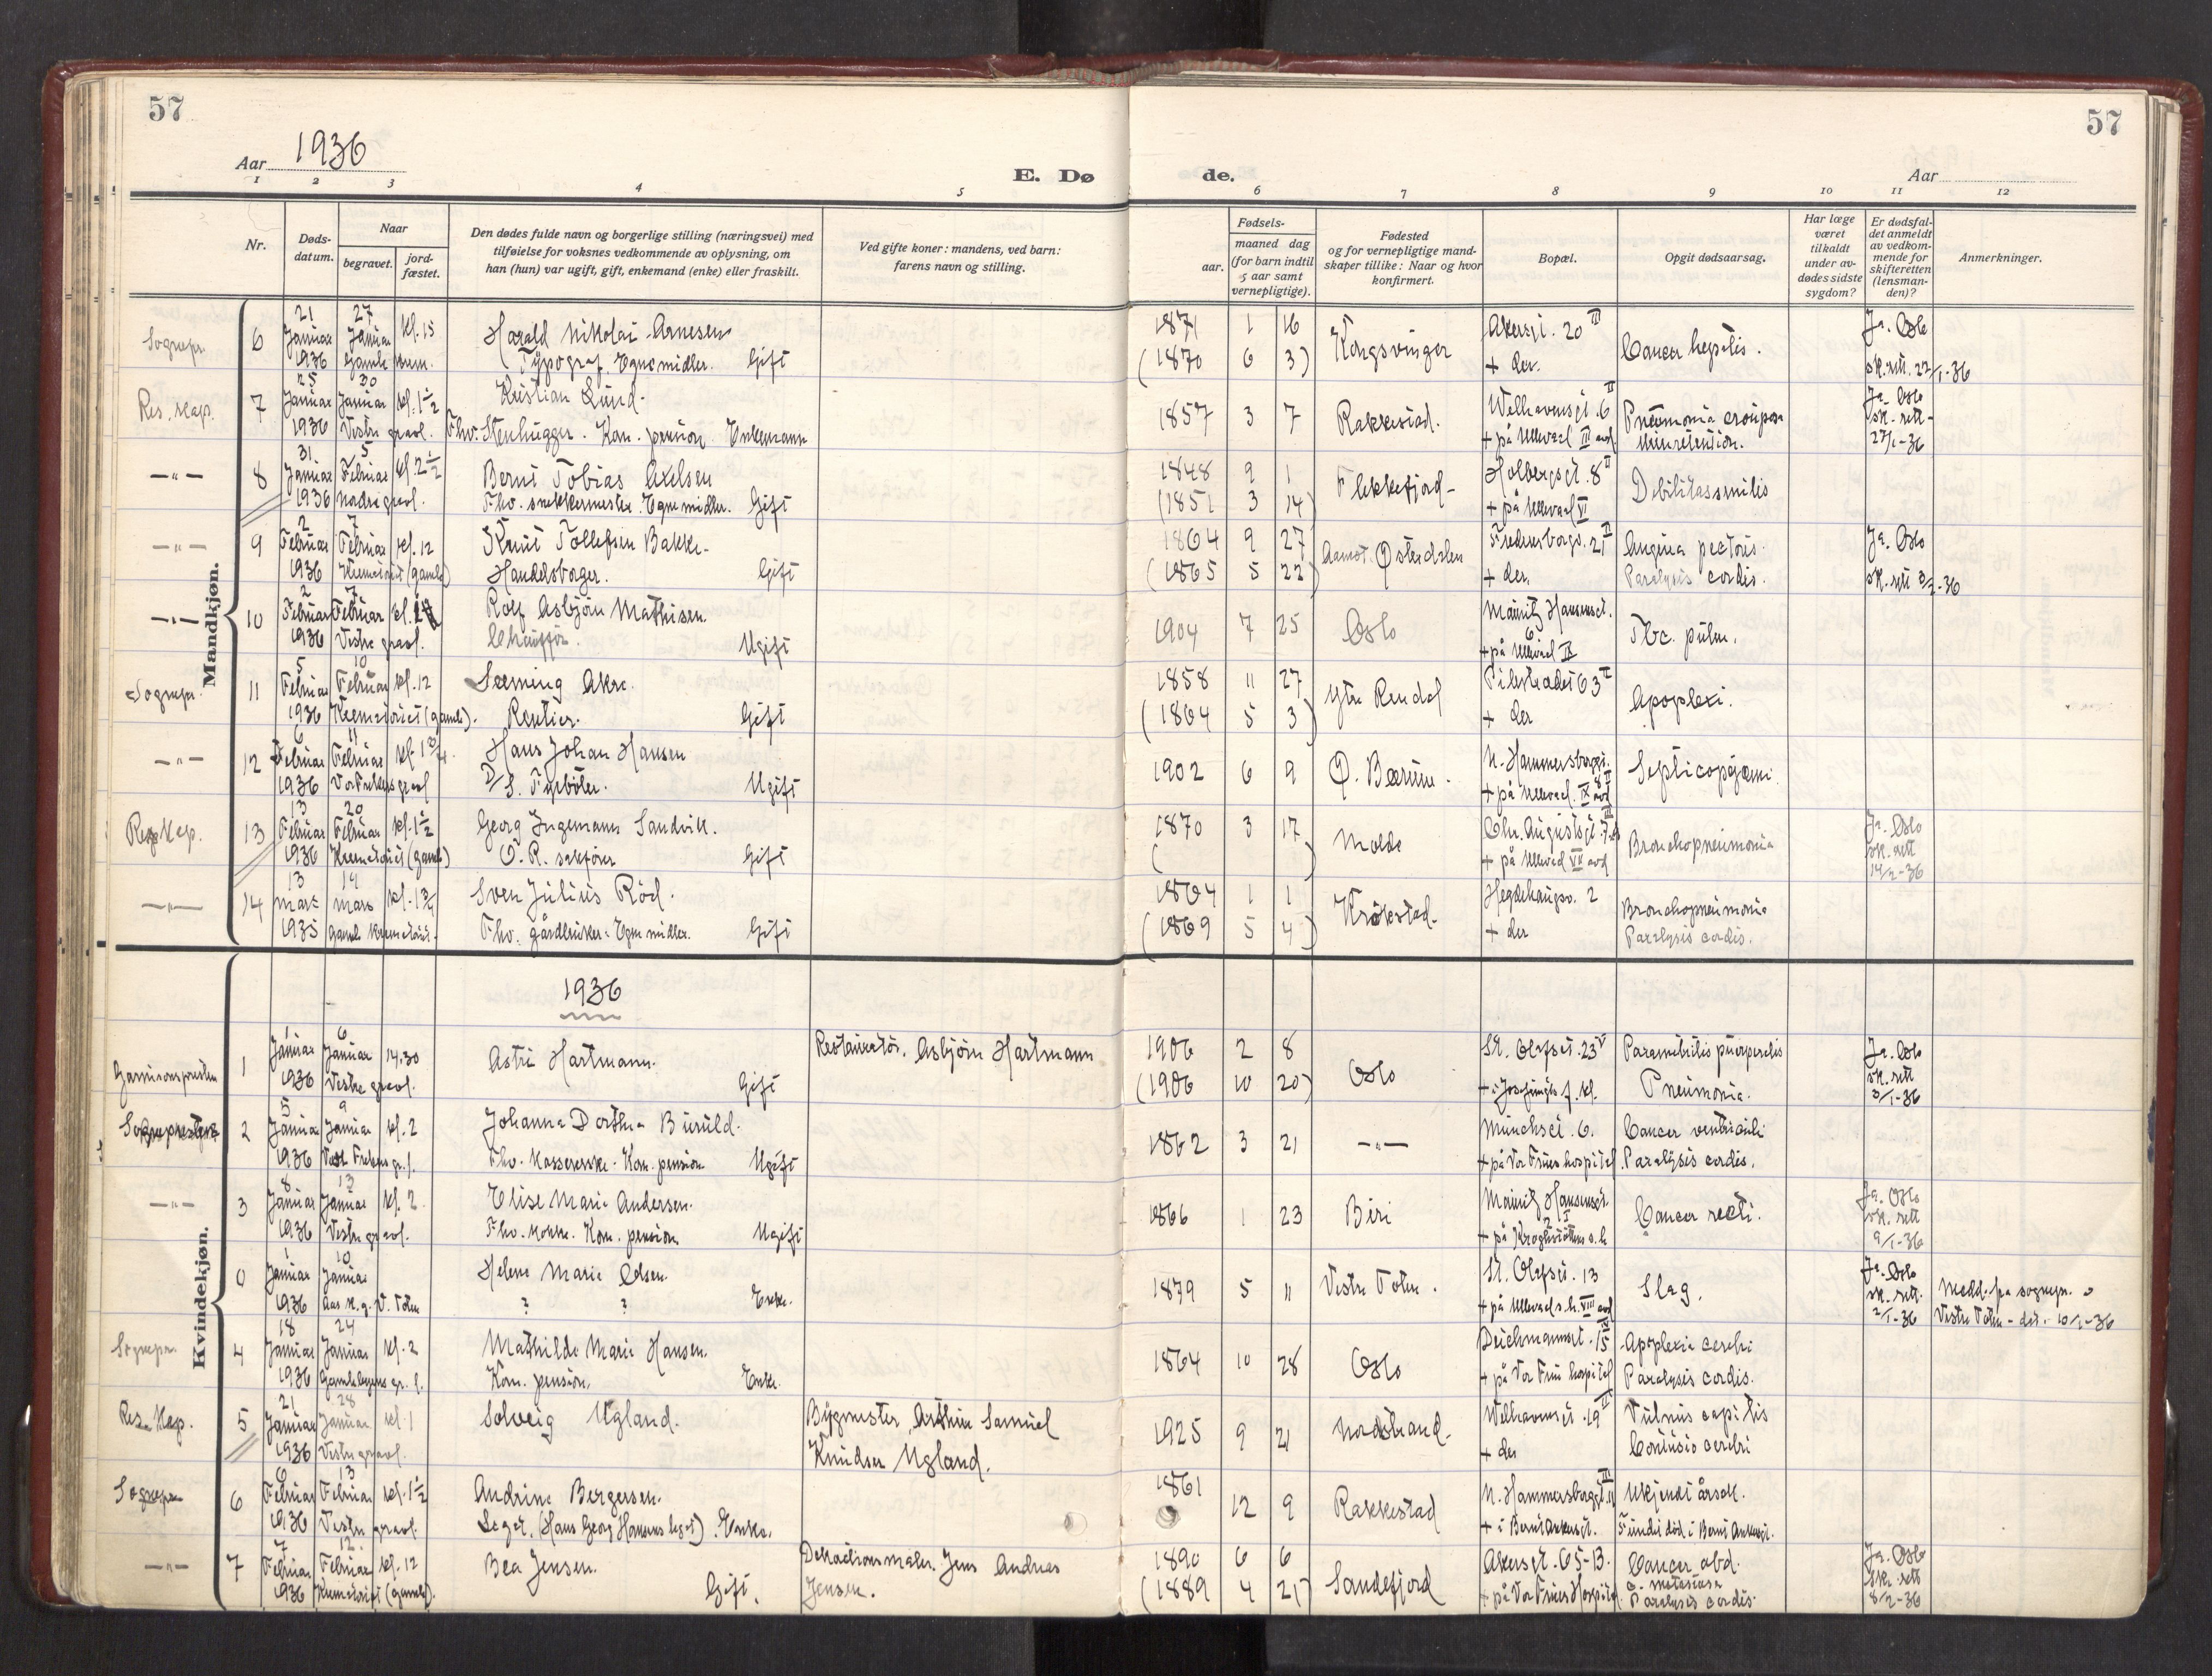 57
57
Aar 1936
E. Dø
de.
Aar
1 2 3 4 5 6 7 8 9 10 11 12
Nr.
Døds-
datum.
Naar
begravet.
jord-
fæstet.
Den dødes fulde navn og borgerlige stilling (næringsvei) med
tilføielse for voksnes vedkommende av oplysning, om
han (hun) var ugift, gift, enkemand (enke) eller fraskilt.
Ved gifte koner: mandens, ved barn:
farens navn og stilling.
aar.
Fødsels-
maaned dag
(for barn indtil
5 aar samt
vernepligtige).
Fødested
og for vernepligtige mand-
skaper tillike: Naar og hvor
konfirmert.
Bopæl.
Opgit dødsaarsag.
Har læge
været
tilkaldt
under av-
dødes sidste
sygdom?
Er dødsfal-
det anmeldt
av vedkom-
mende for
skifteretten
(lensman-
den)?
Anmerkninger.
Mandkjøn.
Sognepr. 6 21 Januar 1936 27 Januar kl. 15 gamle krem.
Harald Nikolai Arnesen
Typograf. Egne midler. Gift
1871 1 16
(1870 6 3)
Kongsvinger
Akersgt. 20 III
+ der.
Cancer hepatis.
Ja. Oslo
sk.rett. 22/1-36
Res. kap. 7 25 Januar 1936 30 Januar kl. 1 1/2 Vestre gravl.
Kristian Lund.
Fhv. Stenhugger. Kom. pension Enkemann
1857 3 7
Rakkestad.
Welhavensgt. 6 II
+ på Ullevaal III avd.
Pneumonia crouposa
Urinretention.
Ja. Oslo
sk. rett-
27/1-36
-"- 8 31 Januar 1936 5 Februar kl. 2 1/2 Nordre gravl.
Bernt Tobias Axelsen
Fhv. snekkermester. Egne midler. Gift
1848 9 1
(1851 3 14)
Flekkefjord-
Holbergsgt. 8 II
+ på Ullevaal VI
Debilitas senilis
-"- 9 2 Februar 1936 7 Februar kl. 12 Krematoriet (gamle)
Knut Tollefsen Bakke-
Handelsborger. Gift
1864 9 27
(1865 5 22)
Aamot. Østerdalen
Fredensborgv. 21 II
+ der.
Angina pectoris.
Paralysis cordis.
Ja. Oslo
sk. rett 3/2-36
-"- 10 2 Februar 1936 7 Februar Vestre gravl.
Rolf Asbjørn Mathisen.
Chauffør. Ugift
1904 7 25
Oslo
Mauritz Hansensgt.
6
+ på Ullevaal IX
Tbc. pulm.
Sognepr. 11 5 Februar 1936 10 Februar kl. 12 Krematoriet (gamle).
Sæming Akre.
Rentier. Gift
1858 11 27
(1864 5 3)
Ytre Rendal
Pilestrædet 63 II
+ der
Apoplexi.
-"- 12 6 Februar 1936 11 Februar kl. 1 3/4 Vor Frelsers gravl
Hans Johan Hansen
D/S. Fyrbøter. Ugift
1902 6 9
Ø. Bærum.
N. Hammersborggt.
8 II
+ på Ullevaal. IX avd
Septicopyæmi.
Res kap. 13 13 Februar 1936 20 Februar kl. 1 1/2 Krematoriet (gamle)
Georg Ingemann Sandvik.
O.R. sakfører Gift
1870 3 17
( )
Molde
Chr. Augustsgt. 7
+ på Ullevaal VII avd
Bronchopneumonia
Ja. Oslo
sk. rett
14/2-36
-"- 14 13 mars 1935 19 mars kl. 1 3/4 gamle krematori.
Sven Julius Rød.
Fhv. gårdbruker. Egne midler. Gift
1864 1 1
(1869 5 4)
Krokstad-
Hegdehaugsv. 2
+ der
Bronchopneumonia
Paralysis cordis.
Kvindekjøn.
1936
Garnisonspresten 1 1 Januar 1936 6 Januar 14.30 Vestre gravl.
Astri Hartmann.
Gift
Restauratør. Asbjørn Hartmann
1906 2 8
(1906 10 20)
Oslo
St. Olafsgt. 23 V
+ i Josefinesgt. f. kl.
Parametritis puerperalis
Pneumonia.
Ja. Oslo
sk. rett
3/1-36
Sognepresten 2 5 Januar 1936 9 Januar kl. 2 Vor Frelsers gr.l.
Johanna Dorthea Buruld.
Fhv. kassererske. Kom. pension Ugift
1862 3 21
-"-
Munchsgt. 6.
+ på Vor Frues hospital.
Cancer ventriculi
Paralysis cordis.
-"- 3 8 Januar 1936 13 Januar kl. 2 Vestre gravl.
Elise Marie Andersen.
Fhv. kokke. Kom. pension Ugift
1866 1 23
Biri
Mauritz Hansensgt.
2 I
+ på Kroghstøttens s.h.
Cancer recti.
Ja. Oslo
sk. rett
9/1-36
0 1 Januar 1936 10 Januar Aas k.g. V. Toten
Helene Marie Olsen.
? ? Enke.
1879 5 11
Vestre Toten.
St. Olafsgt. 13
+ på Ullevaal s.h. VIII avd
Slag.
Ja. Oslo
sk. rett.
2/1-36
Medd. fra sognepr. i
Vestre Toten - dat. 10/1-36
Sognepr. 4 18 Januar 1936 24 Januar kl. 2 Gamlebyens gr.l.
Mathilde Marie Hansen.
Kom. pension. Enke.
1864 10 28
Oslo
Deichmannsgt. 15
+ på Vor Frues hospital
Apoplexia cerebri
Paralysis cordis.
Res. Kap. 5 21 Januar 1936 28 Januar kl. 1 Vestre gravl.
Solveig Ugland.
Bygmester, Arthur Samuel
Knudsen Ugland.
1925 9 21
Nordstrand.
Welhavensgt. 19 III
+ der
Vulnus capitis
Contusio cerebri
Sognepr 6 6 Februar 1936 13 Februar kl. 1 1/2 Vestre gravl.
Andrine Bergersen.
Leget. (Hans Georg Hansens leget). Enke.
1861 12 9
Rakkestad
N. Hammersborggt. 11 III
+ i Bernt Ankersgt.
Ukjendt årsak.
Fundet død i Bernt Ankersgt.
-"- 7 7 Februar 1936 12. Februar kl. 12 Krematoriet (gamle).
Bea Jensen.
Gift.
Dekorationsmaler. Jens Andreas
Jensen.
1890 6 6
(1889 4 21)
Sandefjord
Akersgt. 65-B.
+ på Vor Frues Hospital.
Cancer abd.
c. metastase
Paralysis cordis.
Ja. Oslo
sk. rett
8/2-36